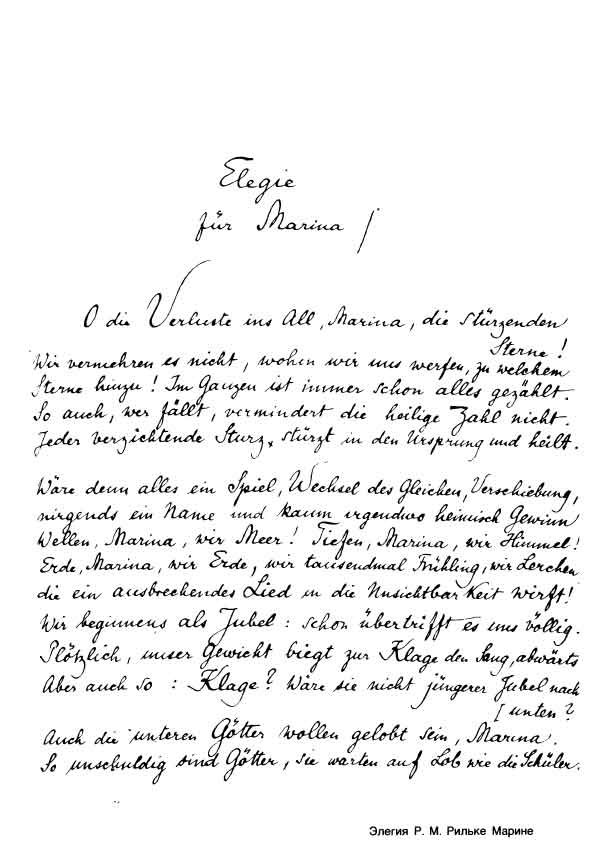 Elegie
für Marina
O die Verluste ins All, Marina, die stürzenden
Sterne!
Wir vermehren es nicht, wohin wir uns werfen, zu welchem
Sterne hinzu! Im Ganzen ist immer schon alles gezählt.
So auch, wer fällt, vermindert die heilige Zahl nicht.
Jeder verzichtende Sturz, stürzt in den Ursprung und heilt.
Wäre denn alles ein Spiel, Wechsel des Gleichen, Verschiebung,
nirgends ein Name und kaum irgendwo heimisch Gewinn
Wellen, Marina, wir Meer! Tiefen, Marina, wir Himmel!
Erde, Marina, wir Erde, wir tausendmal Frühling, wir Lerchen
die ein ausbrechendes Lied in die Unsichtbarkeit wirft!
Wir beginnens als Jubel: schon übertrifft es uns völlig.
Plötzlich, unser Gewicht biegt zur Klage den Sang, abwärts
Aber auch so: Klage? Wäre sie nicht jüngerer Jubel nach
[unten?
Auch die unteren Götter wollen gelobt sein, Marina.
So unschuldig sind Götter, sie warten auf Lob wie die Schüler.
Элегия Р. М. Рильке Марине